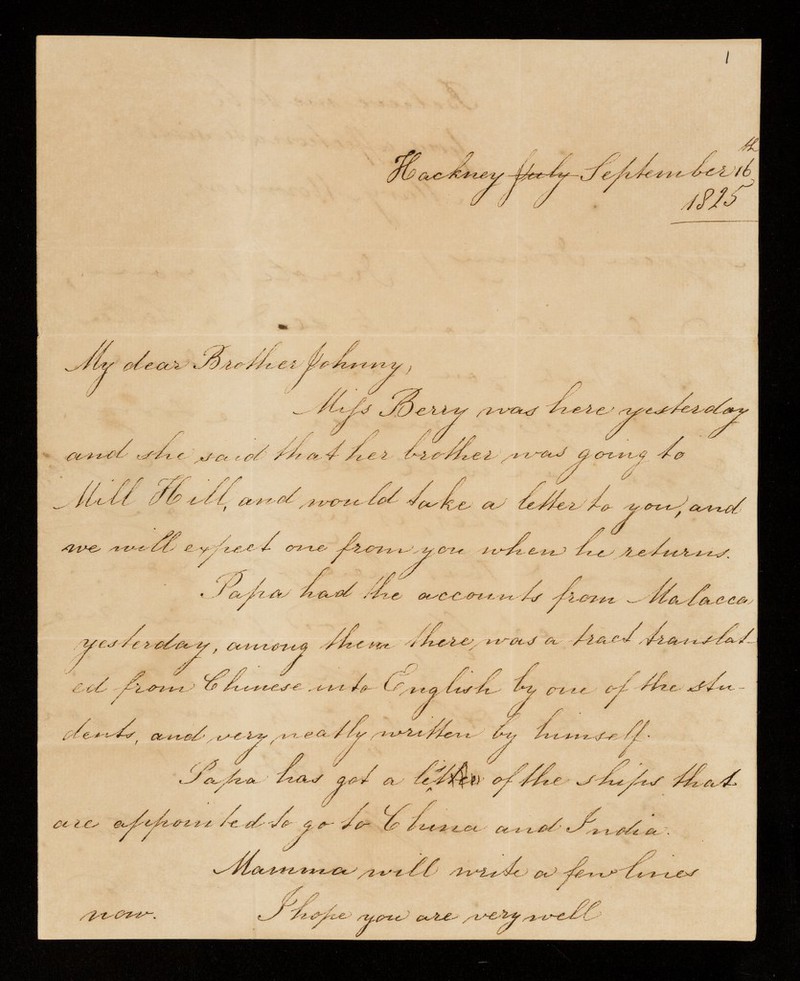 1
Hackney July September 16th
1825
My dear Brother Johnny,
Miss Berry was here yesterday
and she said that her brother was going to
Mill Hill, and would take a letter to you, and
we will expect one from you when he returns.
Papa had the accounts from Malacca
yesterday, among them there was a tract translat-
ed from Chinese into English by one of the stu-
dents, and very neatly written by himself.
Papa has got a of the ships that
are appointed to go to China and India.
Mamma will write a few lines
now. I hope you are very well